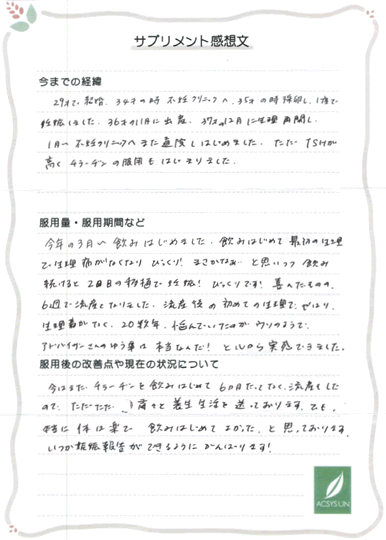 サプリメント感想文
今までの経緯
29才で結婚、34才の時 不妊クリニックへ、35才の時採卵し、1才で
妊娠しました。36才の11月に出産、37才の12月に生理再開し、
1月〜 不妊クリニックへ また通院しはじめました。ただ TSHが
高く チラーヂンの服用もはじまりました。
服用量・服用期間など
今年の3月〜 飲みはじめました。飲みはじめて 最初の生理
で生理痛がなくなり びっくり! まさかなぁ と思いつつ 飲み
続けると 2回目の移植で妊娠! びっくりです! 喜んだものの、
6週で流産となりました。流産後の初めての生理で、やはり、
生理痛がなく、20数年、悩んでいたのがウソのようで、
さんの言う事は 本当なんだ! と心から実感できました。
服用後の改善点や現在の状況について
今はまだ チラーヂンを飲みはじめて 6か月たってなく、流産もした
ので、ただただ 養生生活を送っております。でも、
特に 体は楽で 飲みはじめて よかった、と思っております。
いつか妊娠報告ができるように がんばります!
ACSYSUN